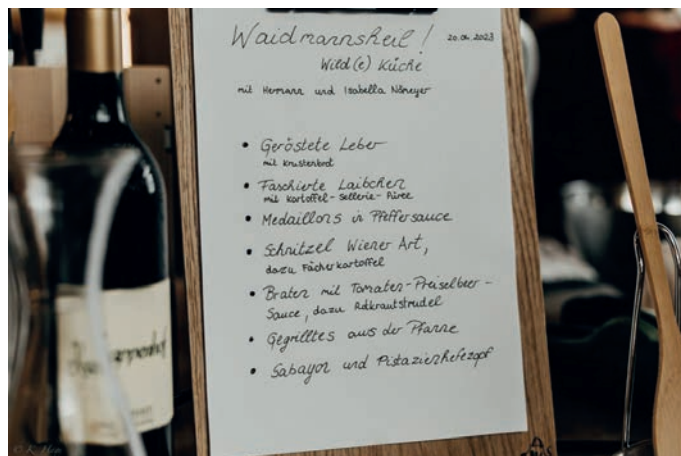 Waidmannsheil!
20.06.2023
Wild(e) Küche
mit Hermann und Isabella
• Geröstete Leber
mit Krustenbrot
• Faschierte Laibchen
mit Kartoffel-Sellerie-Püree
• Medaillons in Pfeffersauce
• Schnitzel Wiener Art,
dazu Fächerkartoffel
• Braten mit Tomaten-Preiselbeer-
Sauce, dazu Rotkrautstrudel
• Gegrilltes aus der Pfanne
• Sabayon und Pistazienhefezopf